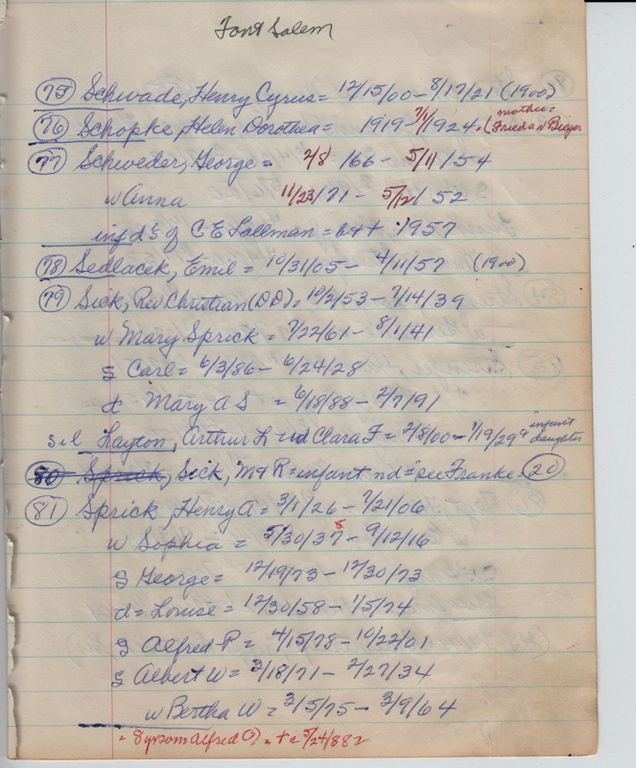 Font Salem
(75) Schwade, Henry Cyrus = 12/15/00 - 8/17/21 (1900)
(76) Schopke, Helen Dorothea = 1919 - 7/1/1924. (mother = Frieda w Bieger
(77) Schweder, George = 2/8/66 - 5/11/54
w Anna 11/23/71 - 5/2/52
inf d's of C E Sallman = b++ 1957
(78) Sedlacek, Emil = 10/31/05 - 4/11/57 (1900)
(79) Sick, Rev Christian (DD) = 10/2/53 - 7/14/39
w Mary Sprick = 7/22/61 - 8/1/41
S Carl = 6/3/86 - 6/24/28
d Mary A S = 6/18/88 - 2/7/91
s i l Layton, Arthur L = w Clara F = 2/8/00 - 1/19/29 "infant daughter
80 Sprick, Sick, M R = infant nd = see Franke (20)
(81) Sprick, Henry A = 3/1/26 - 7/21/06
w Sophia = 5/30/37 8 - 9/12/16
S George = 12/19/73 - 12/30/73
d = Louise = 12/30/58 - 1/5/74
S Alfred P = 4/15/78 - 10/22/01
S Albert W = 3/18/71 - 2/27/34
w Bertha W = 3/5/75 - 3/9/64
8 yrs om Alfred (?) = +c 5/24/882